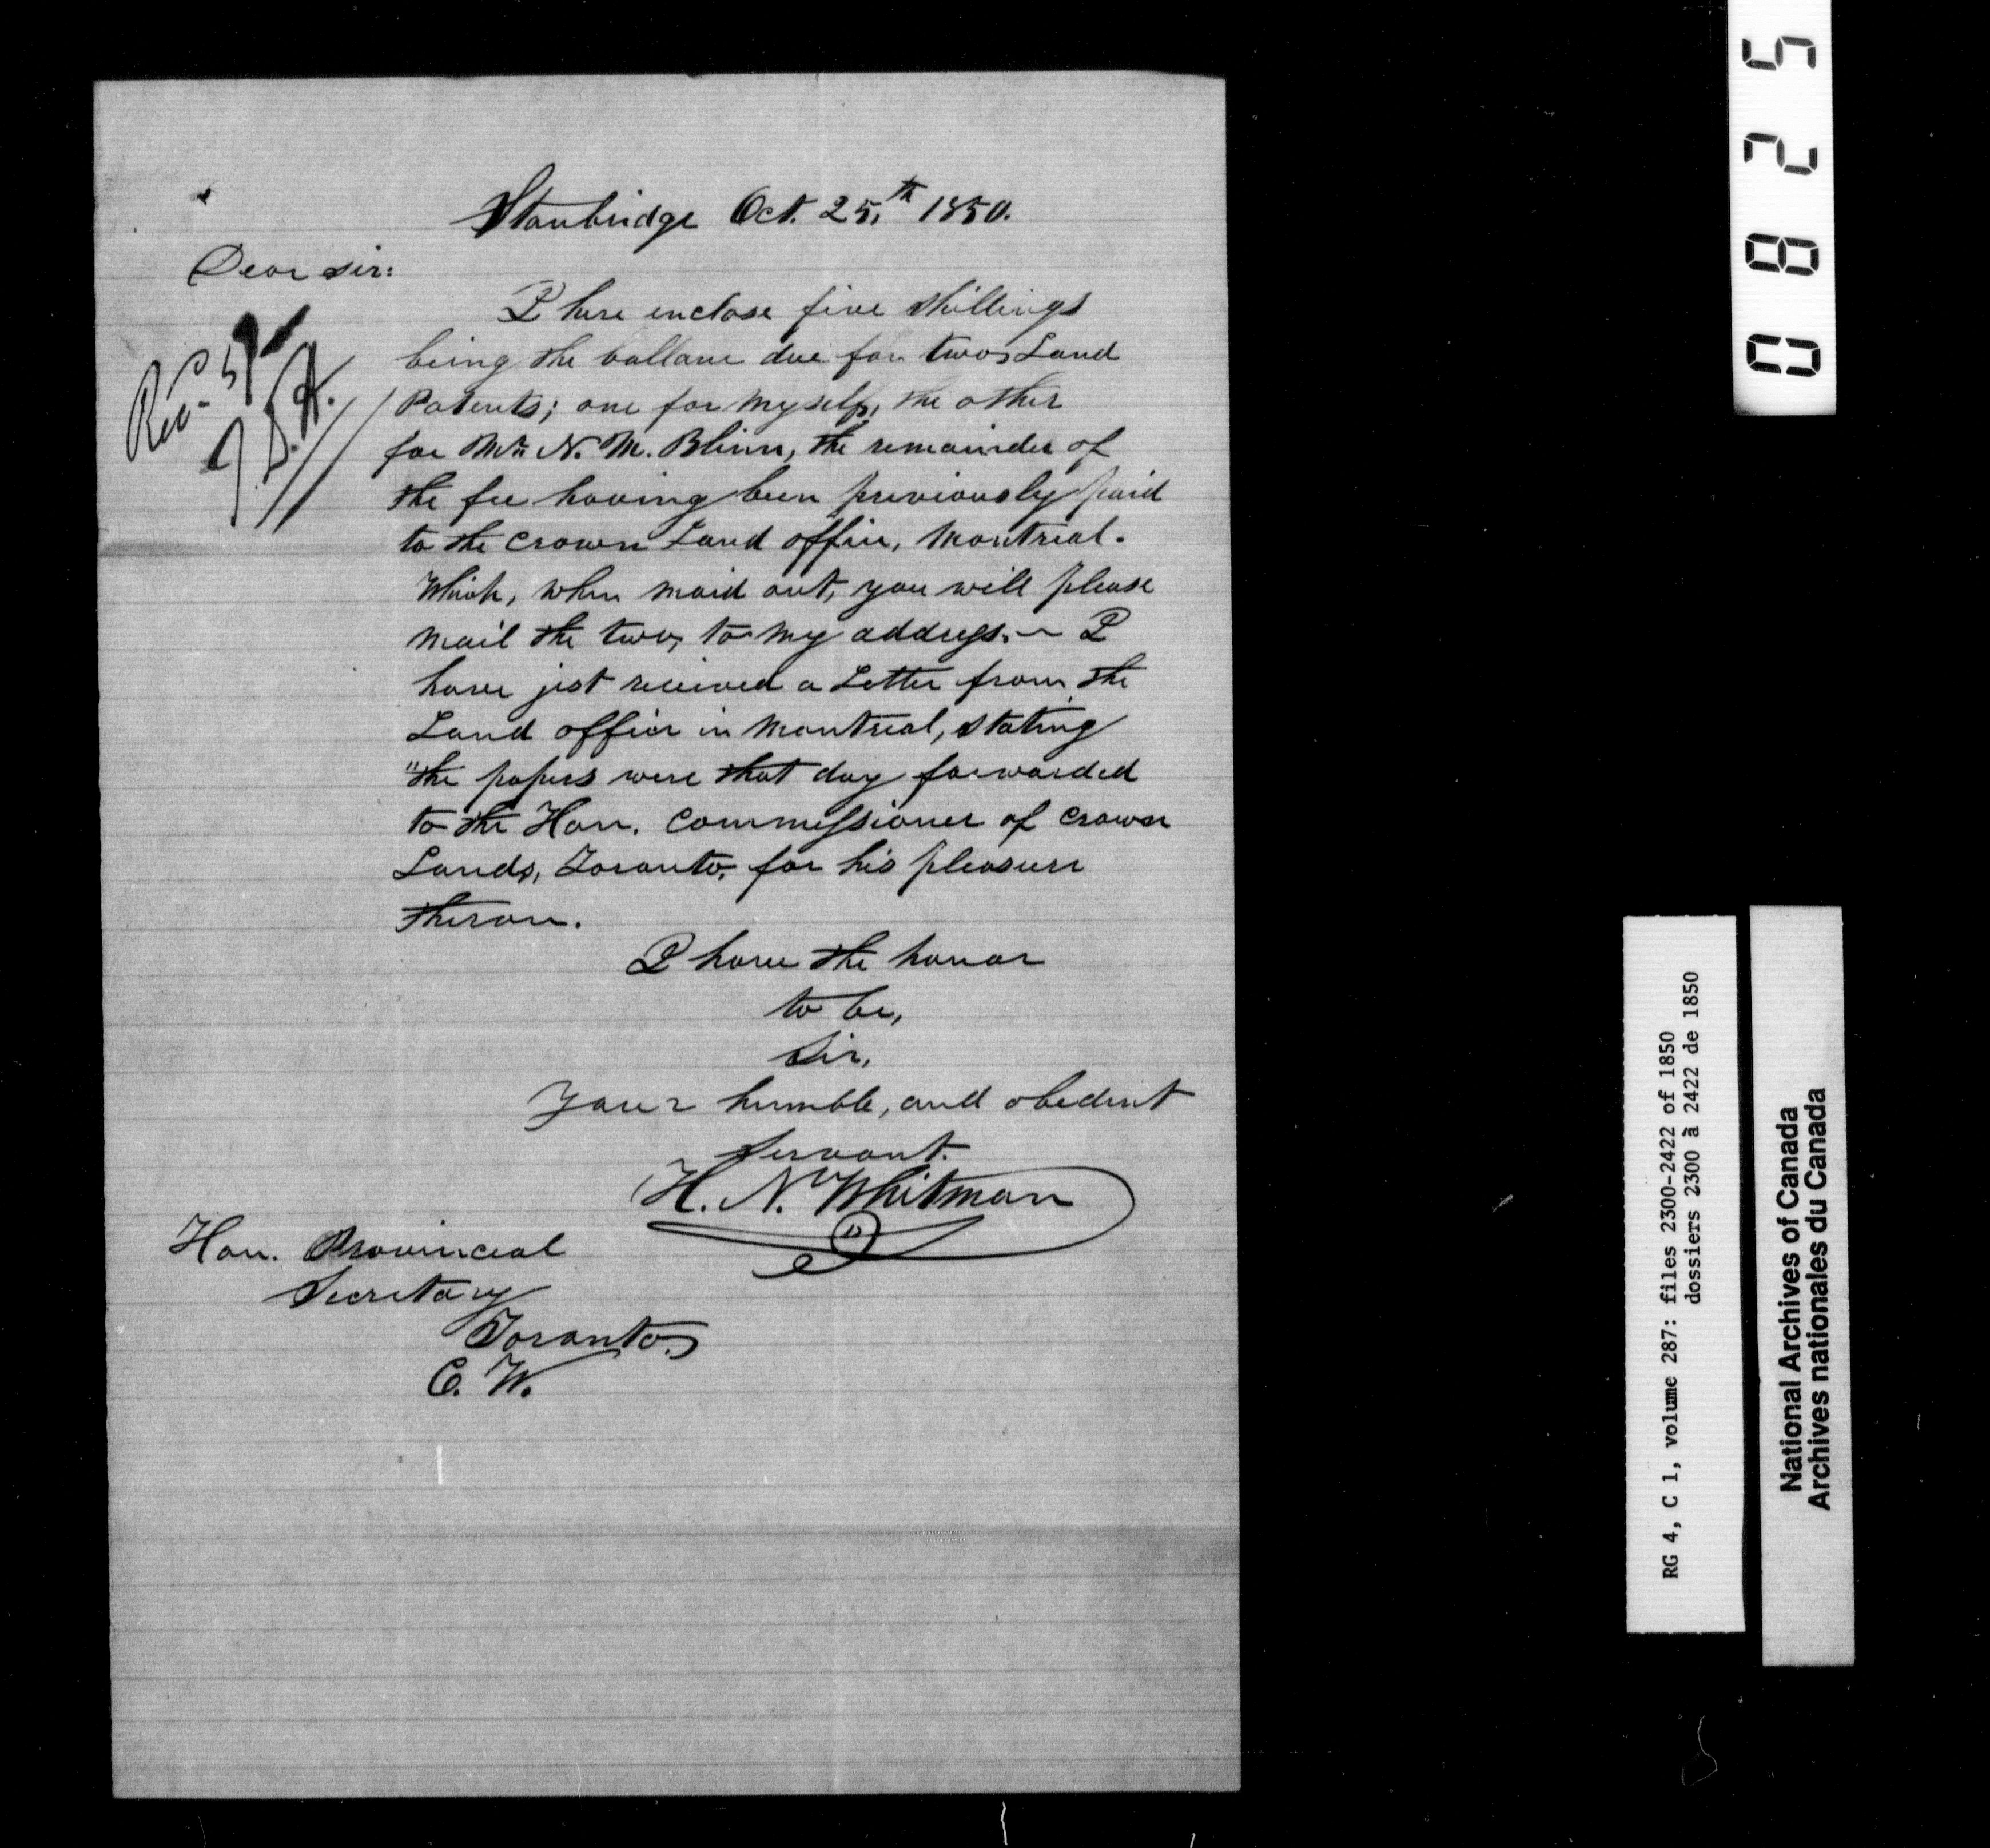 Stanbridge Oct. 25,th 1850.
Dear sir:
I here enclose five shillings
being the ballance due for two Land
Patents; one for myself, the other
for Mr. N. M. Blinn, the remainder of
the fee having been previously paid
to the Crown Land office, Montreal.
Which, when maid out, you will please
mail the two, to my address. ~ I
have jest received a Letter from the
Land office in Montreal, stating
"the papers were that day forwarded
to the Hon. Commissioner of Crown
Lands, Toronto, for his pleasure
theron.
I have the honor
to be,
Sir,
Your humble, and obedent
Servant.
H. N. Whitman
Hon. Provincial
Secretary
Toronto.
C. W.
Recd 5/-
0825
RG 4, C 1, volume 287: files 2300-2422 of 1850
dossiers 2300 à 2422 de 1850
National Archives of Canada
Archives nationales du Canada